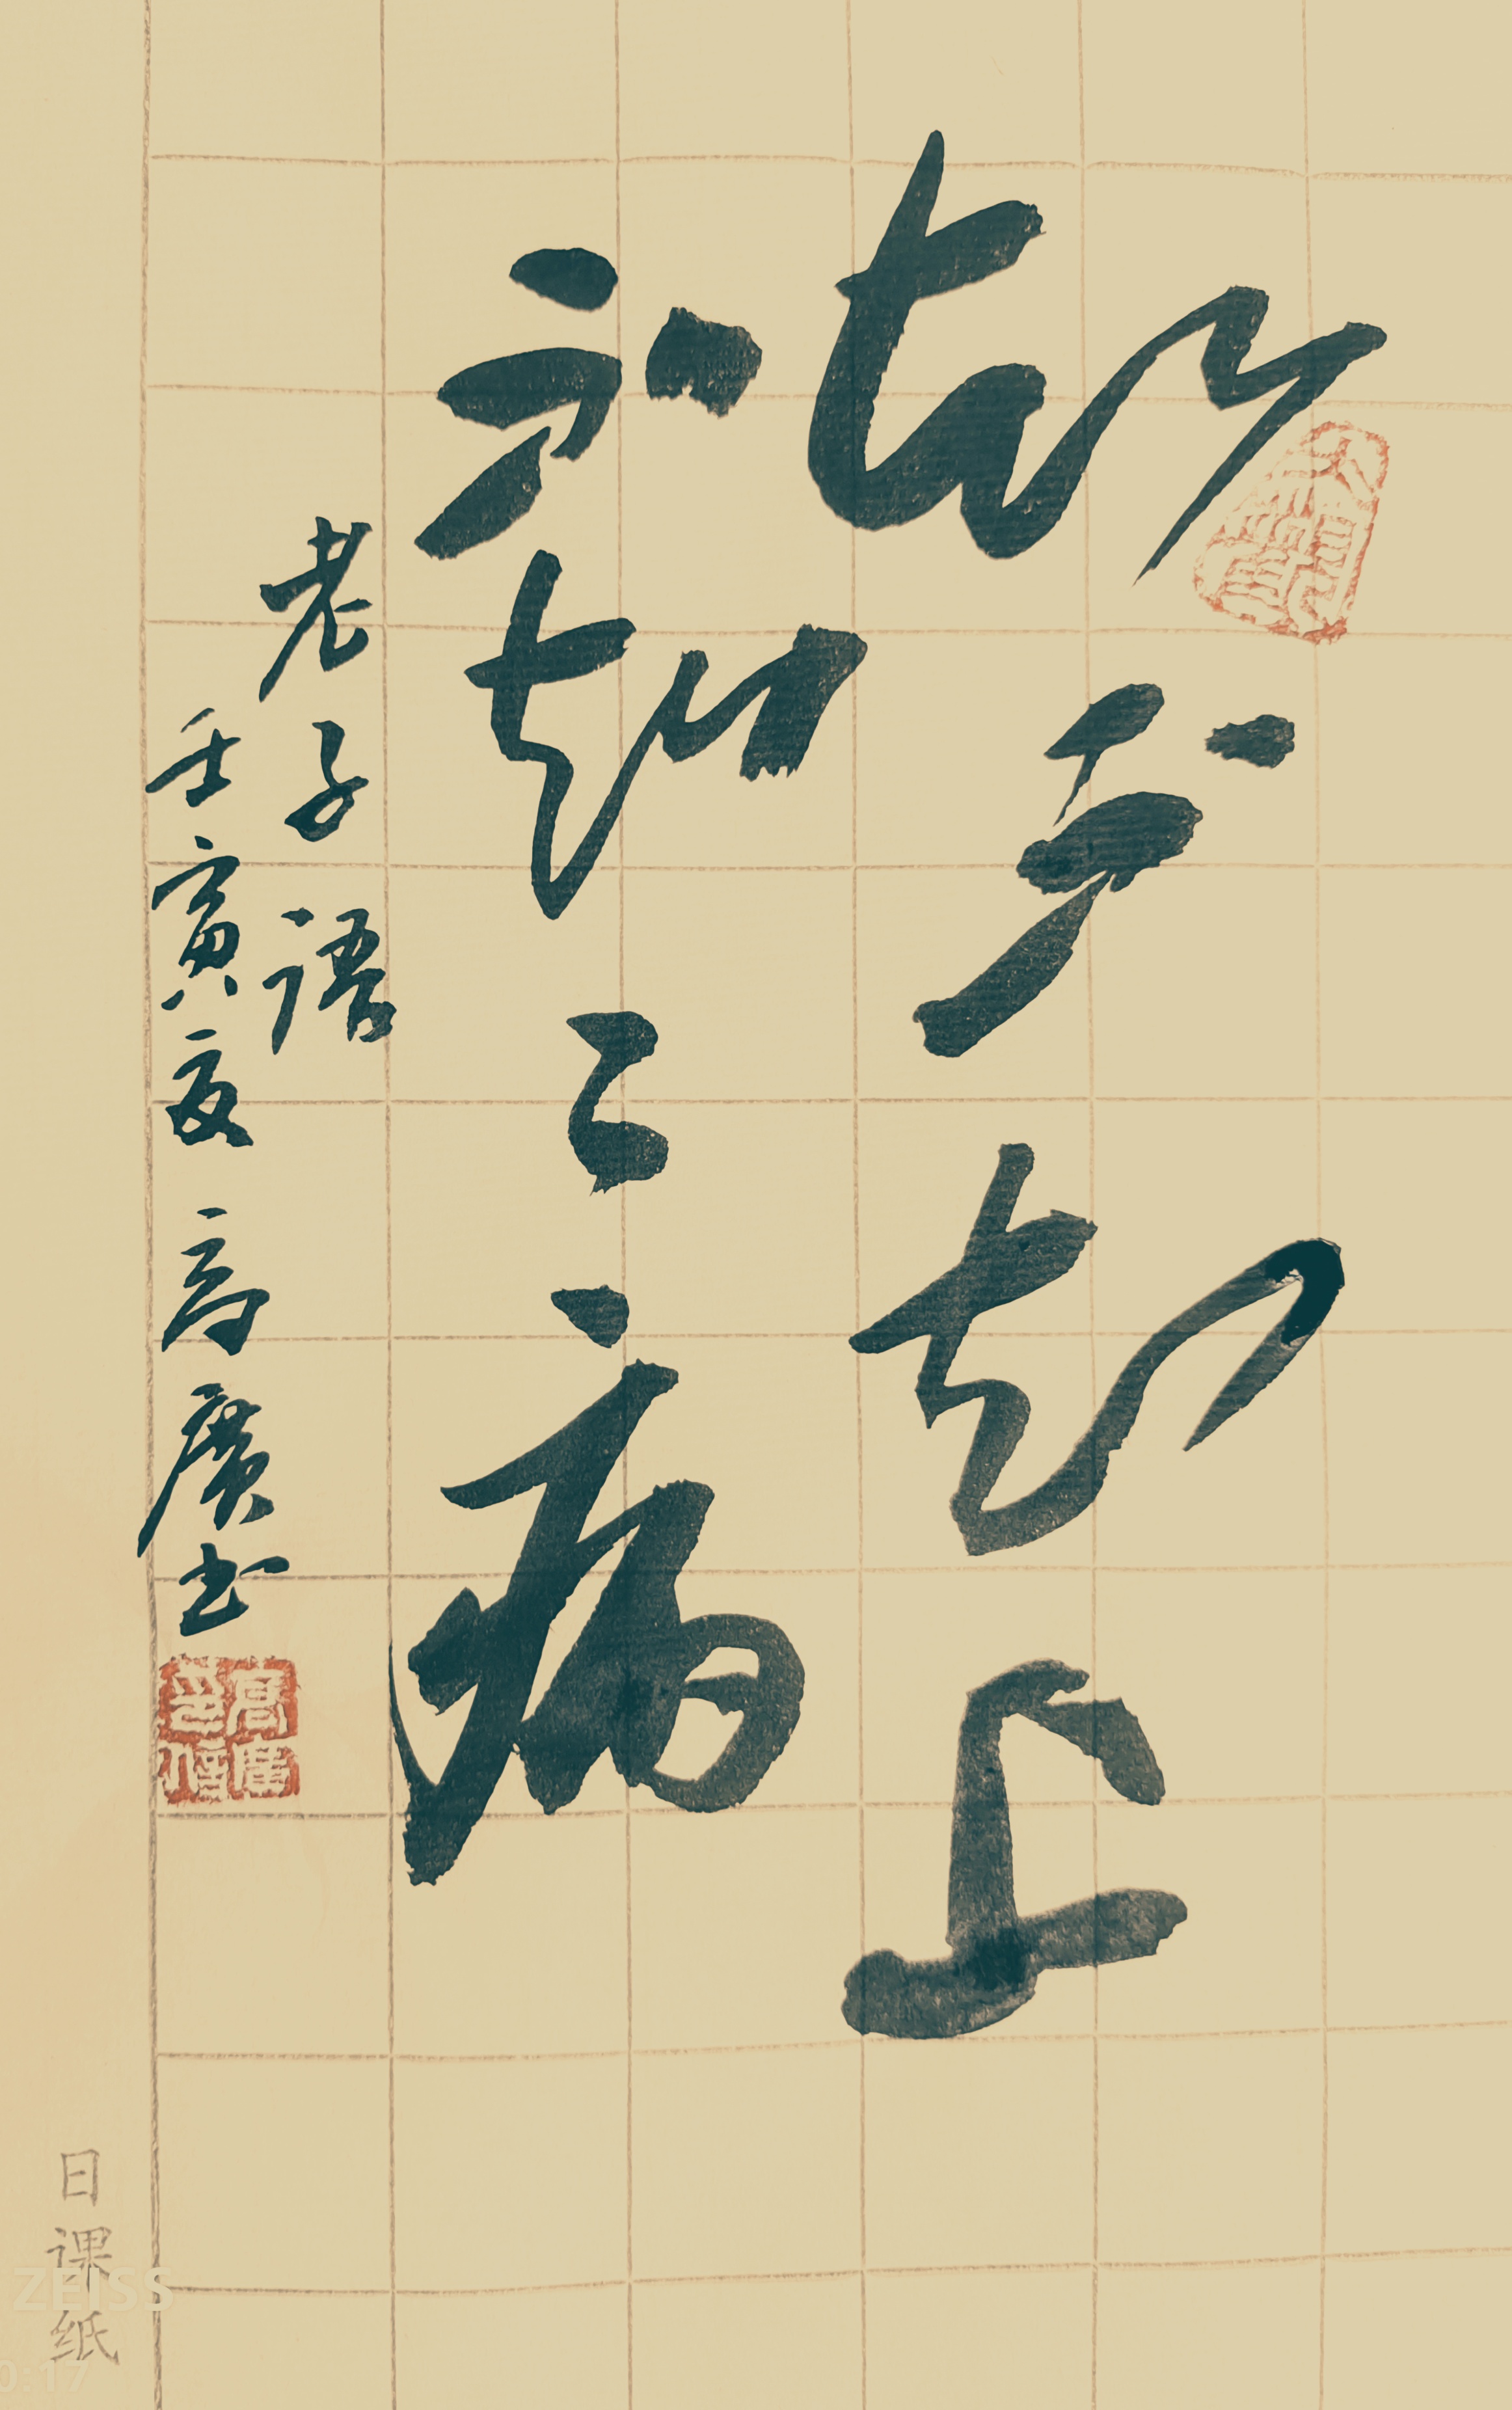 知不知上
不知知病
老子语
壬寅夏高廣书
高廣
日课纸
ZEISS
0:17